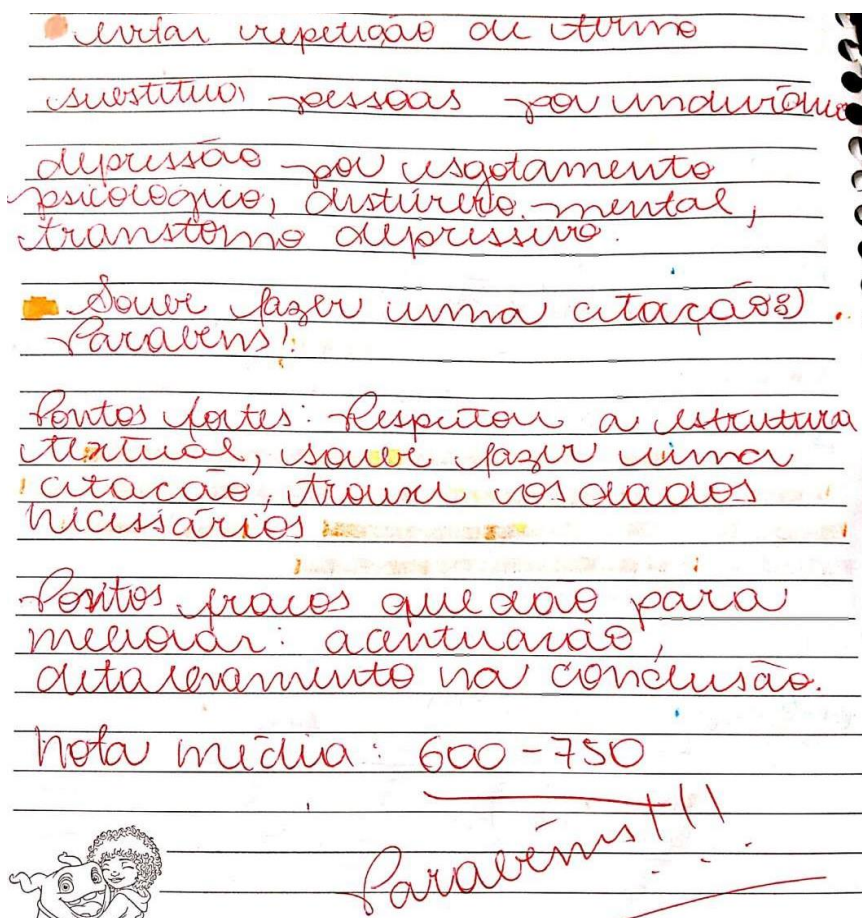 evitar repetição de termo
substitua pessoas por indivíduo
depressão por esgotamento
psicológico, distúrbio mental,
transtorno depressivo.
Soube fazer uma citação(s).
Parabéns!
Pontos fortes: Respeitou a estrutura
textual, soube fazer uma
citacão, trouxe os dados
necessários
Pontos fracos que dão para
melhorar: acentuacão,
detalhamento na conclusão.
Nota média: 600-750
Parabéns!!!